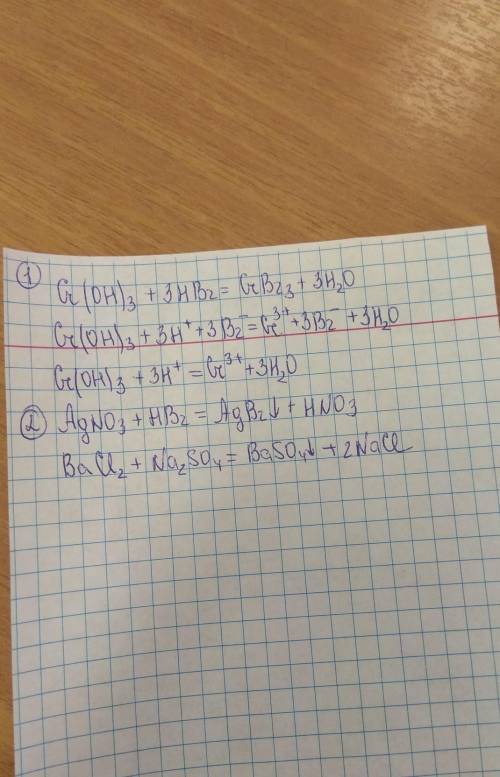 ①
Cr(OH)₃ + 3HBr = CrBr₃ + 3H₂O
Cr(OH)₃ + 3H⁺ + 3Br⁻ = Cr³⁺ + 3Br⁻ + 3H₂O
Cr(OH)₃ + 3H⁺ = Cr³⁺ + 3H₂O
② AgNO₃ + HBr = AgBr↓ + HNO₃
BaCl₂ + Na₂SO₄ = BaSO₄↓ + 2NaCl